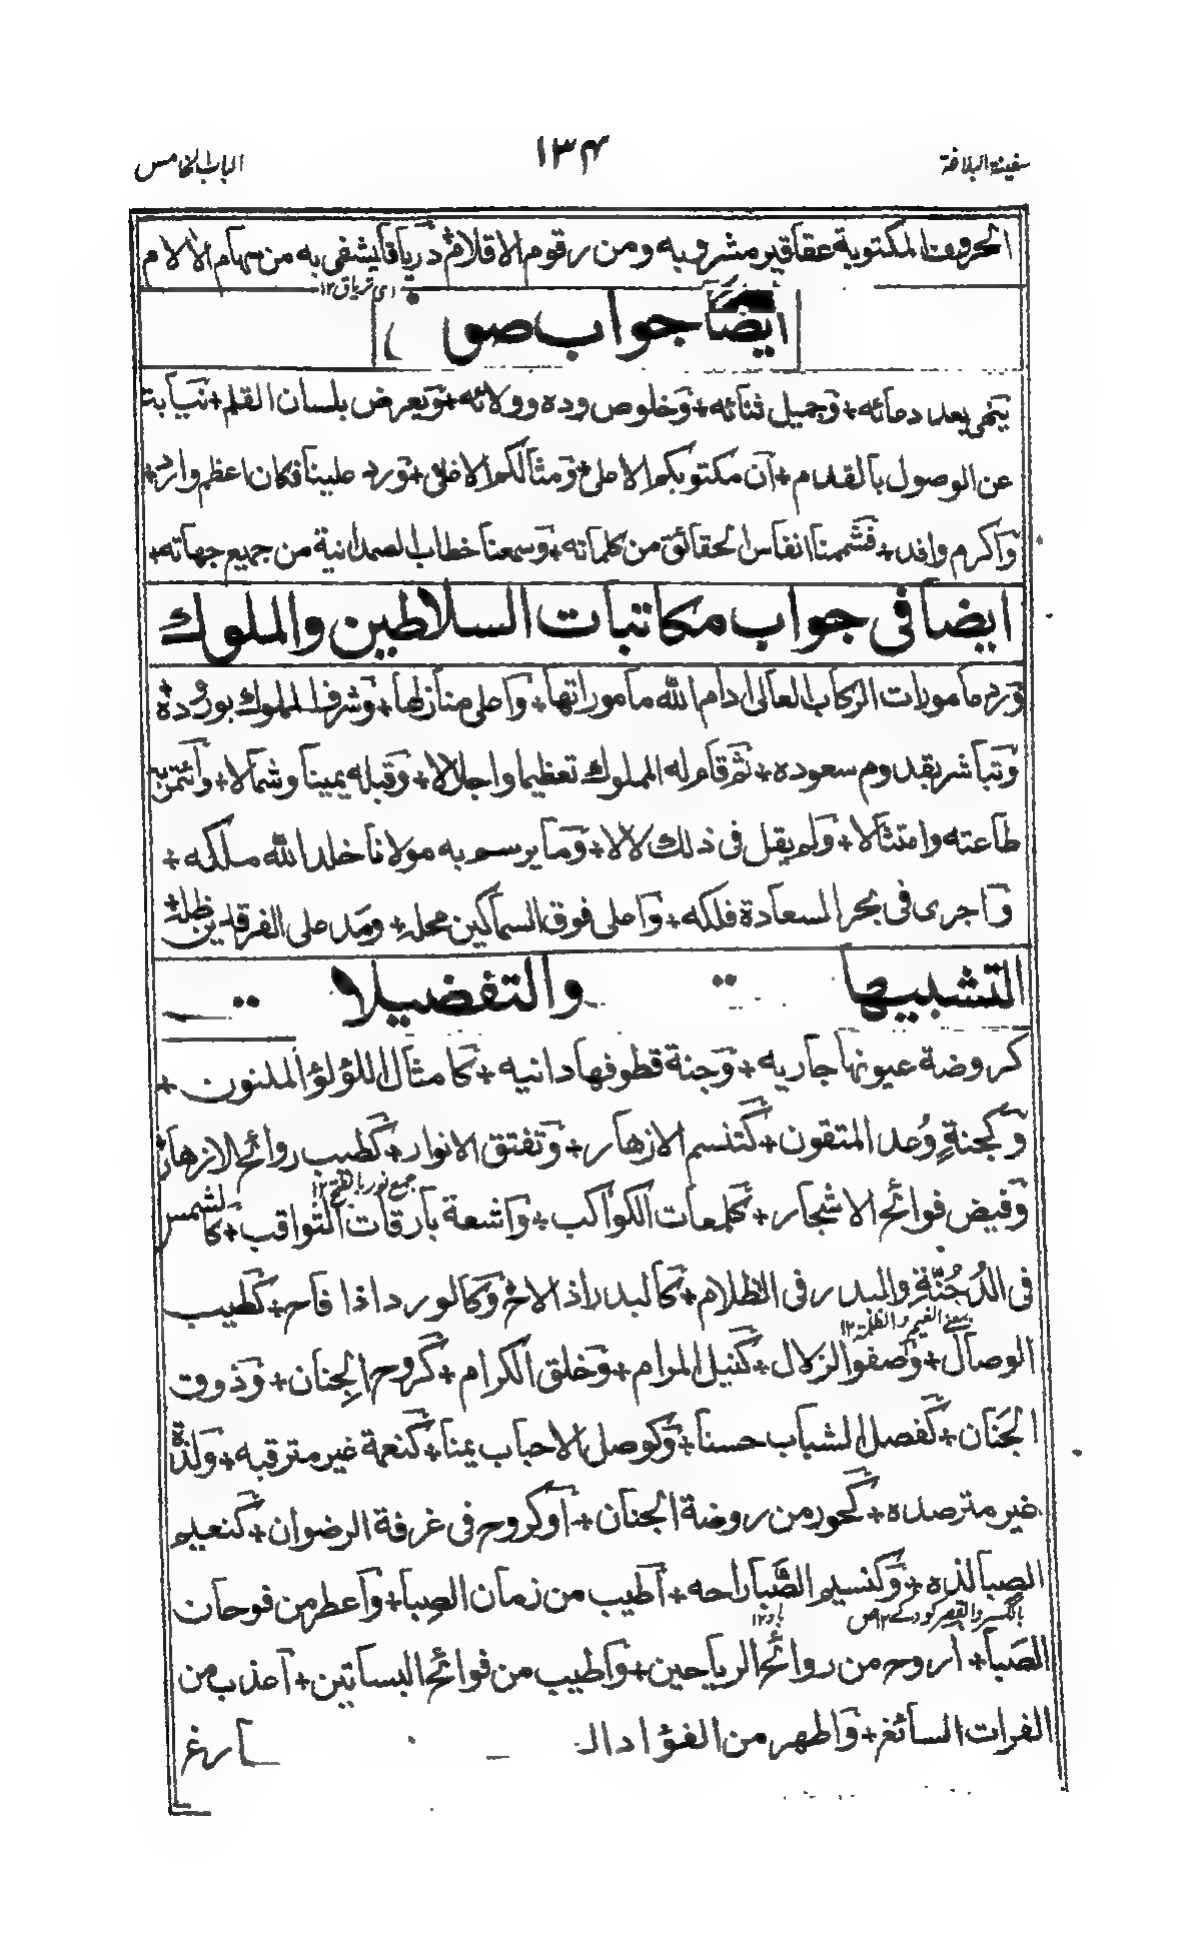 سفينة البلاغة
١٣٤
الباب الخامس
الحروف المكتوبة عقاقير مشروبه ومن رقوم الاقلام درياقا يشفى به من سهام الآلام
اى ترياق ١٢
ايضا جواب
ينهى بعد دعائه + وجميل ثنائه + وخلوص وده وولائه + ويعرض بلسان القلم + نيابة
عن الوصول بالقدم + ان مكتوبكم الاعلى + ومثالكم الاغلى + ورد علينا فكان اعظم وارد +
واكرم وافد + فشممنا انفاس الحقائق من كلماته + وسمعنا خطاب الصمدانية من جميع جهاته +
ايضا فى جواب مكاتبات السلاطين والملوك
ورد مامورات الركاب العالى ادام الله ماموراتها + واعلى منازلها + وشرف المملوك بوروده +
وتباشر بقدوم سعوده + ثم قام له المملوك تعظيما واجلالا + وقبله يمينا وشمالا + وائتمن به
طاعته وامتثالا + ولم يقل فى ذلك لالا + وما يرسم به مولانا خلد الله ملكه +
واجرى فى بحر السعادة فلكه + واعلى فوق السماكين محله + ومد على الفرقدين ظله +
التشبيهات والتفضيلات
كروضة عيونها جاريه + وجنة قطوفها دانيه + كامثال اللؤلؤ المكنون +
وكجنةٍ وُعد المتقون + كتنسم الازهار + وتفتق الانوار + كطيب روائح الازهار +
جمع نور بالفتح ١٢
وفيض فوائح الاشجار + كلمعات الكواكب + واشعة بارقات الثواقب + كالشمس
فى الدُجُنَّةِ والبدر فى الظلام + كالبدر اذ الاح وكالورد اذا فاح + كطيب
يعنے الغيم والظلمة ١٢
الوصال + وصفو الزلال + كنيل المرام + وخلق الكرام + كروح الجِنان + وذوق
الجَنان + كفصل الشباب حسنا + وكوصل الاحباب يمنا + كنعمة غير مترقبه + ولذة
غير مترصده + كحور من روضة الجنان + اوكروح فى غرفة الرضوان + كنعيم
الصبا لذه + وكنسيم الصَّبا راحه + اطيب من زمان الصِبا + واعطر من فوحات
بالكسر والقصر كودكے ١٢ ص
باد ١٢
الصَبا + اروح من روائح الرياحين + واطيب من فوائح البساتين + اعذب من
الفرات السائغ + واطهر من الفؤاد